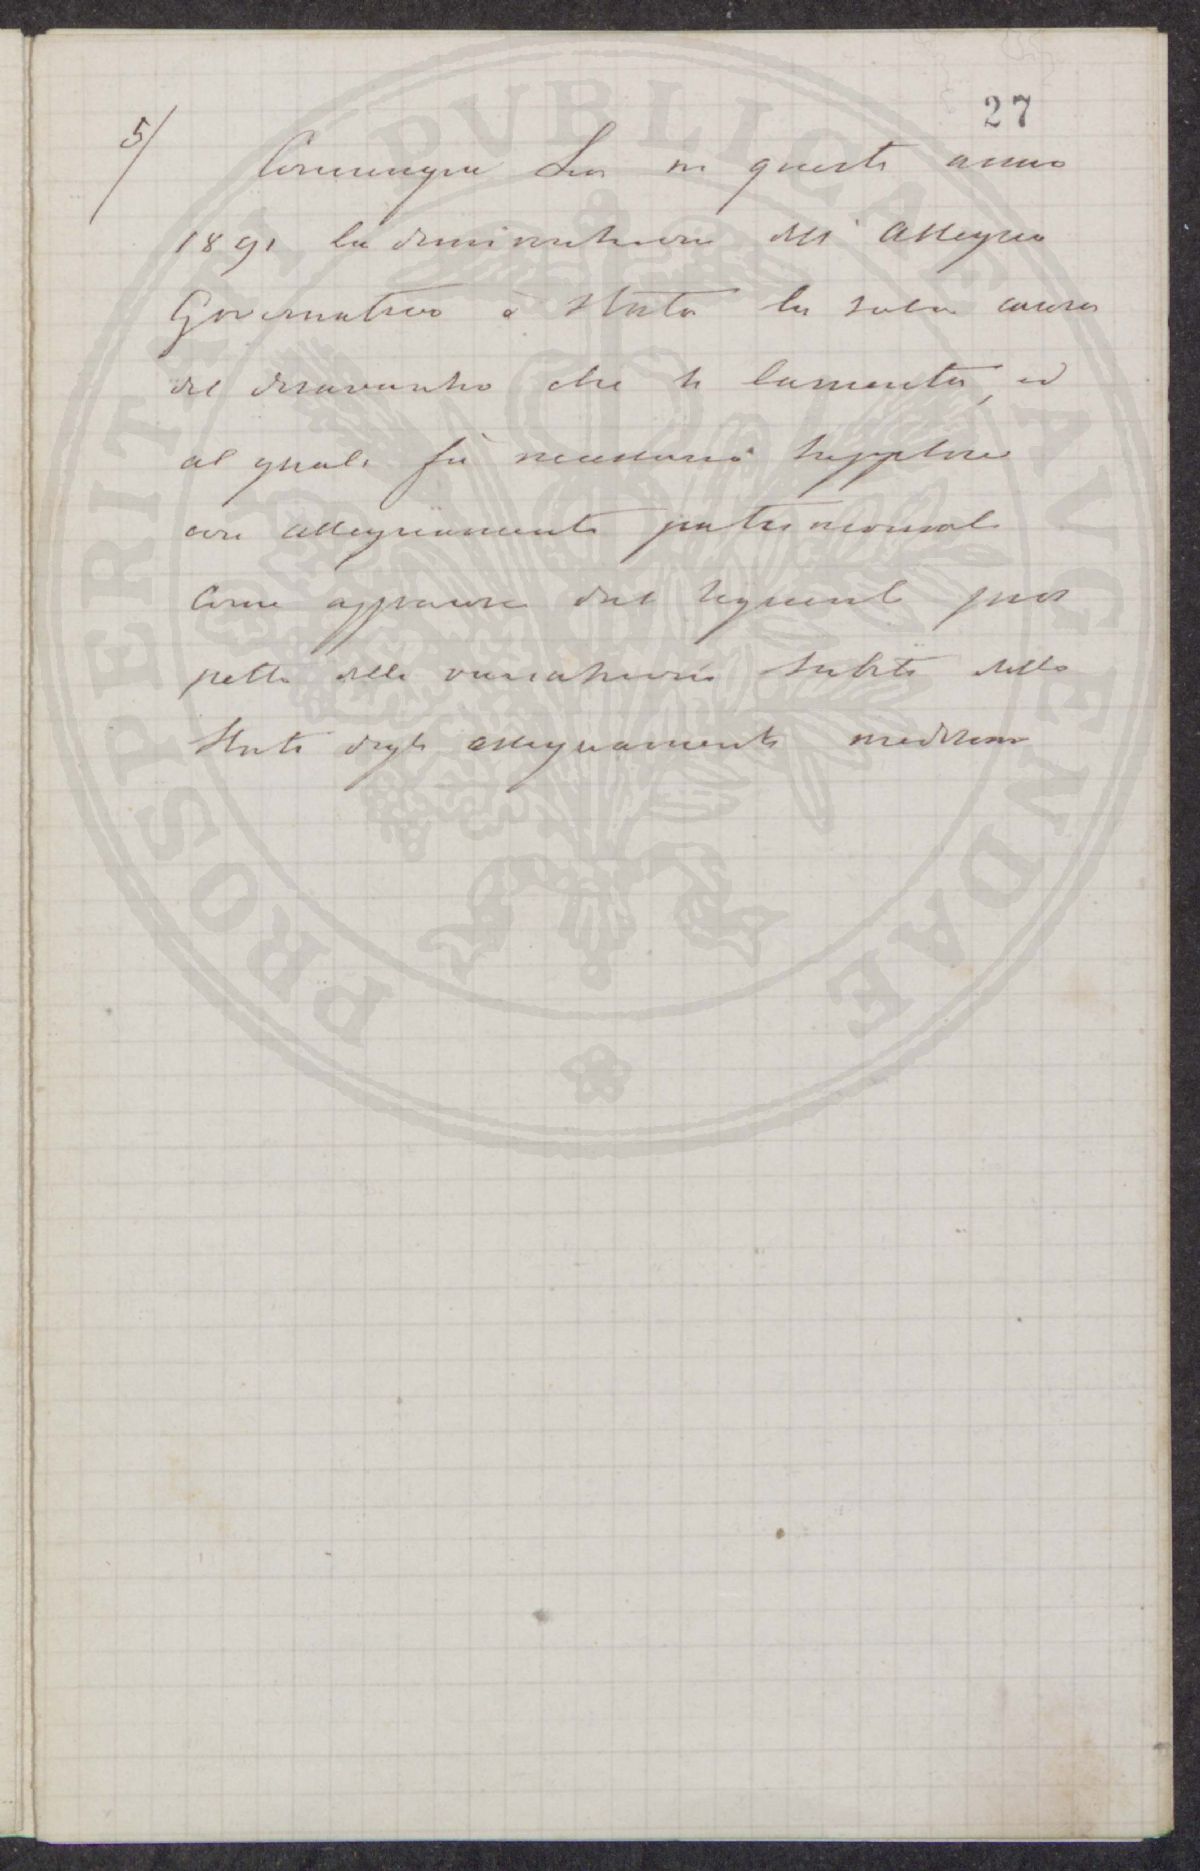 27
5/
Comunque sia in questo anno
1891 la diminuzione dell' assegno
Governativo è stata la sola causa
del disavanzo che si lamenta, ed
al quale fù necessario supplire
con assegnamenti patrimoniali
Come apparisce dal seguente pros
petto delle variazioni subite dallo
Stato degli assegnamenti medesimi
PROSPERITATI PVBLICAE AVGENDAE